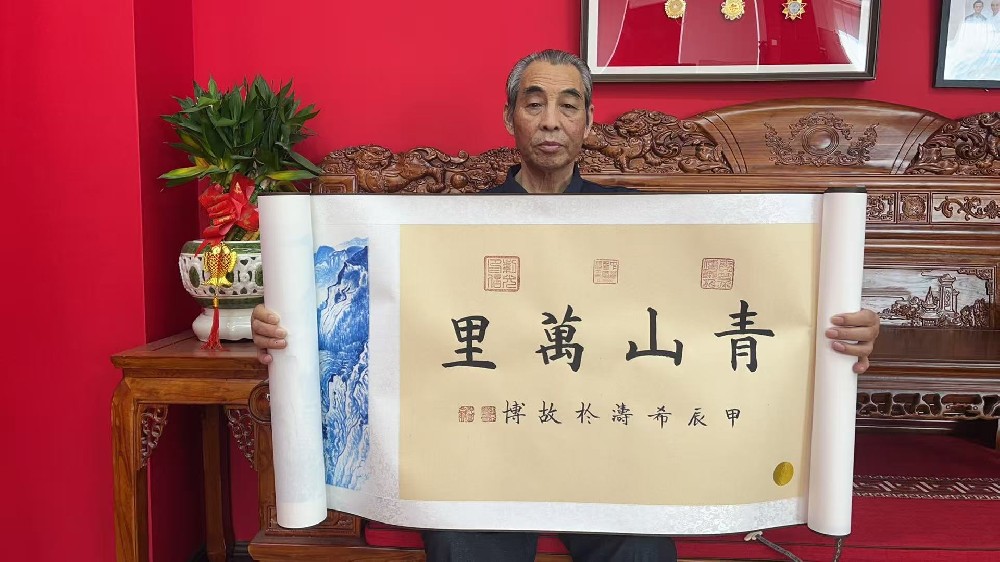 青山萬里
甲辰希濤扵故博